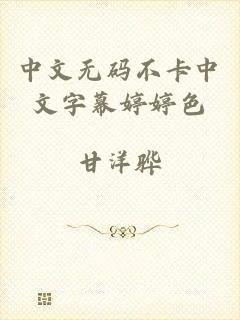 中文无码不卡中
文字幕婷婷色
甘洋骅